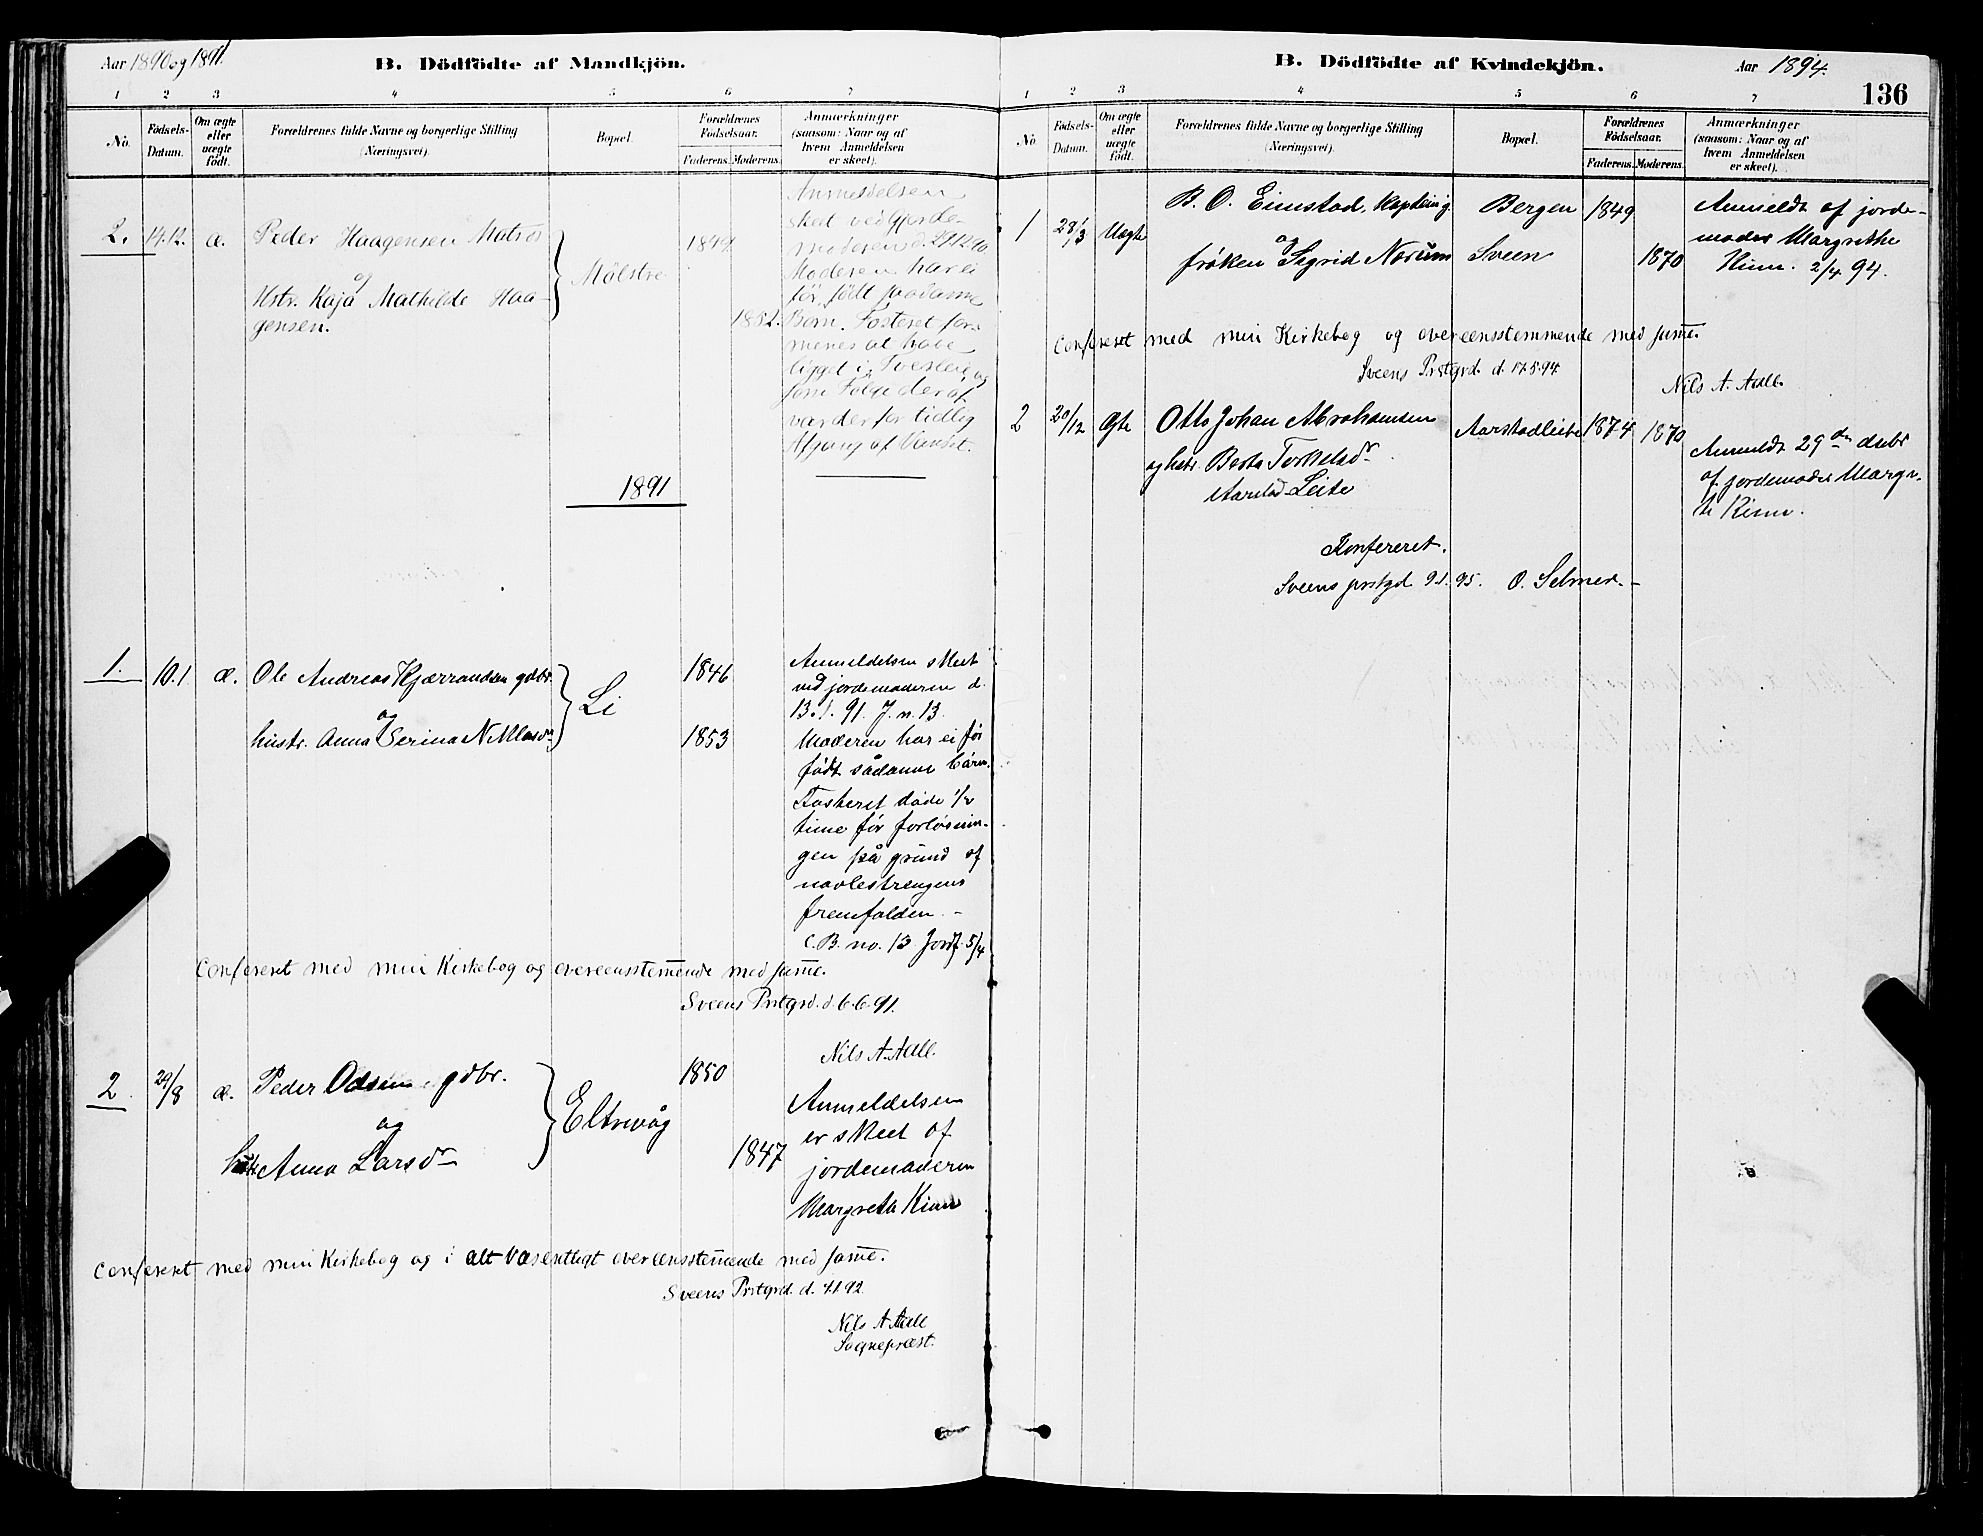 Aar 1890 og 1891.
B. Dödfödte af Mandkjön.
1 2 3 4 5 6 7
No.
Födsels-Datum.
Om ægte eller uægte födt.
Forældrenes fulde Navne og borgerlige Stilling (Næringsvei).
Bopæl.
Forældrenes Födselsaar.
Faderens. Moderens.
Anmærkninger (saasom: Naar og af hvem Anmeldelsen er skeet).
2. 14.12. æ. Peder Haagensen Matros
og
Hstr. Kaja Mathilde Haa-
gensen.
Mölstre
1849
1852.
Anmeldelsen
skeet ved Gjorde-
moderen d. 29.12.90
Moderen har ei
før født saadanne
Børn. Fosteret for-
menes at have
ligget i Tverleie og
som Følge deraf
var der for tidlig
Afgang af Vandet.
1891
1. 10.1 æ. Ole Andreas Kjærrandsen gdbr.
og
hustr. Anna Serina Nilsdr
Li
1846
1853
Anmeldelsen skeet
ved jordemoderen d.
13.1.91. J.n.13.
Moderen har ei før
født sådanne børn.
Fosteret døde 1/2
time før forløsnin-
gen på grund af
navlestrengens
fremfalden. -
C.B. no. 13 Jordf. 5/4
Confereret med min Kirkebog og overeensstem̄ende med sam̄e.
Sveens Prstgrd. d. 6.6.91.
Nils A. Aall.
2. 29/8 æ. Peder Odsen gdbr.
og
hstr Anna Larsdr
Eltrevåg
1850
1847
Anmeldelsen
er skeet af
jordemoderen
Margretha Kinn
Confereret med min Kirkebog og i alt Væsentligt overeensstem̄ende med sam̄e.
Sveens Prstgrd. d. 4.1.92.
Nils A Aall
Sognepræst.
B. Dödfödte af Kvindekjön.
Aar 1894.
136
1 2 3 4 5 6 7
No.
Födsels-Datum.
Om ægte eller uægte födt.
Forældrenes fulde Navne og borgerlige Stilling (Næringsvei).
Bopæl.
Forældrenes Födselsaar.
Faderens. Moderens.
Anmærkninger (saasom: Naar og af hvem Anmeldelsen er skeet).
1 28/3 Uægte B. O. Eimstad, kaptein
og
frøken Sigrid Norum
Bergen 1849
Sveen 1870
Anmeldt af jorde-
moder Margrethe
Kinn. 2/4 94.
Confereret med min Kirkebog og overeensstemmende med sam̄e.
Sveens Prstgrd. d. 17.5.94.
Nils A. Aall.
2 20/12 Ægte Otto Johan Abrahamsen
og hstr. Berta Torkelsdr.
Aarstad Leite
Aarstadleite 1874 1870
Anmeldt 29de dsbr
af jordemoder Margre-
te Kinn.
Konfereret.
Sveens prstgd. 9.1.95. O. Selmer. -